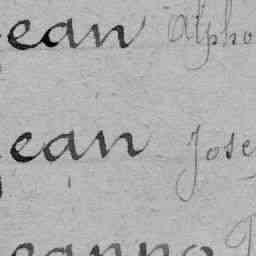 ean Alpho
ean Jose
eanno